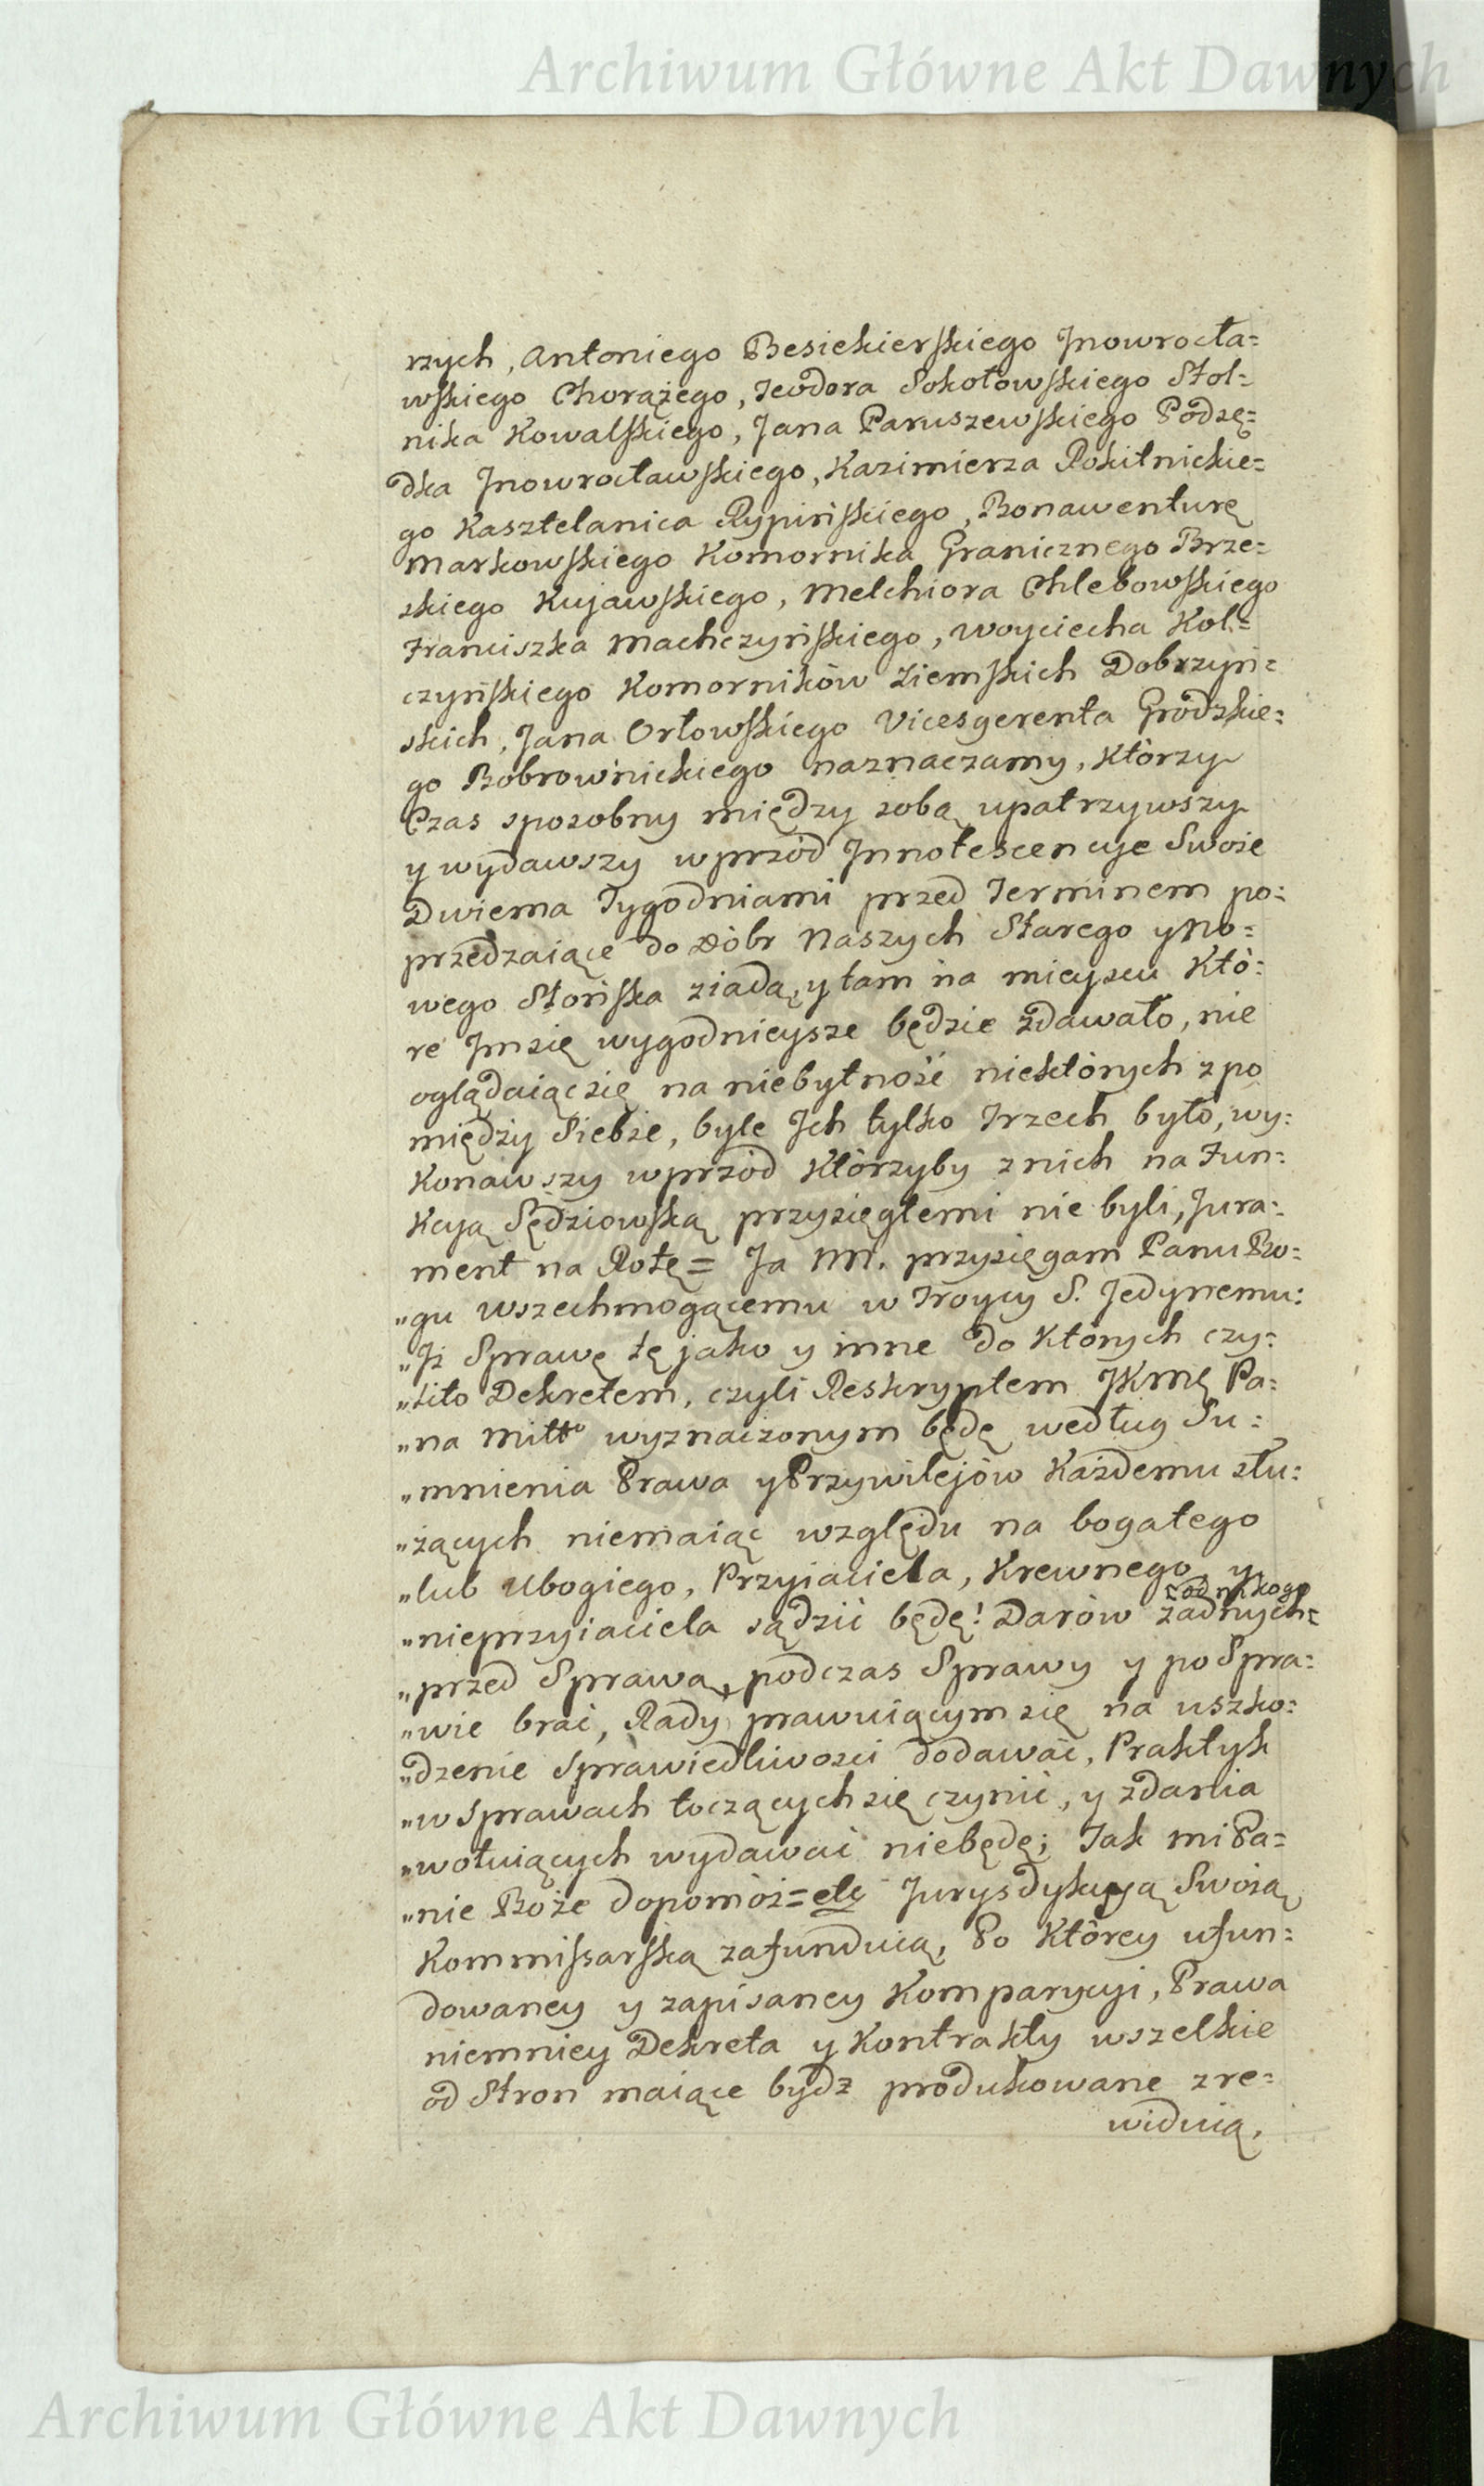 Archiwum Główne Akt Dawnych
rzych, Antoniego Besiekierskiego Jnowrocła=
wskiego Chorążego, Teodora Sokołowskiego Stol=
nika Kowalskiego, Jana Paruszewskiego Podsę=
dka Jnowrocławskiego, Kazimierza Rokitnickie=
go Kasztelanica Rypińskiego, Bonawenturę
Markowskiego Komornika Granicznego Brze=
skiego Kujawskiego, Melchiora Chlebowskiego
Franciszka Machczyńskiego, Woyciecha Kol=
czyńskiego Komorników Ziemskich Dobrzyń=
skich, Jana Orłowskiego Vicesgerenta Grodzkie=
go Bobrownickiego naznaczamy, Którzy
Czas sposobny między sobą upatrzywszy
y wydawszy wprzód Jnnotescencye Swoie
Dwiema Tygodniami przed Terminem po=
przedzaiące do Dóbr Naszych Starego y No=
wego Słońska ziadą, y tam na mieyscu Któ=
re Jm się wygodnieysze będzie zdawało, nie
oglądaiąc się na niebytność niektórych z po
między Siebie, byle Jch tylko Trzech było, wy=
Konawszy wprzód Którzyby z nich na Fun=
Kcyą Sędziowską przysięgłemi nie byli, Jura=
ment na Rotę = Ja NN. przysięgam Panu Bo=
„gu Wszechmogącemu w Troycy S. Jedynemu:
„Jż Sprawę tę jako y inne do Których czy=
„lito Dekretem, czyli Reskryptem JKMę Pa=
„na Miłłº wyznaczonym będę według Su=
„mnienia Prawa y Przywilejów Każdemu słu=
„żących niemaiąc względu na bogatego
„lub Ubogiego, Przyiaciela, Krewnego, y
od nikogo
„nieprzyiaciela sądzić będę! Darów żadnych=
„przed Sprawą, podczas Sprawy y po Spra=
„wie brać, Rady prawuiącym się na uszko=
„dzenie Sprawiedliwości dodawać, Praktyk
„w Sprawach toczących się czynić, y zdania
„wotuiących wydawać niebędę; Tak mi Pa=
„nie Boże dopomóż = etc Jurysdykcyą Swoią
Kommissarską zafunduią, Po Którey ufun=
dowaney y zapisaney Komparycyi, Prawa
niemniey Dekreta y Kontrakty wszelkie
od Stron maiące bydz produkowane zre=
widuią,
Archiwum Główne Akt Dawnych